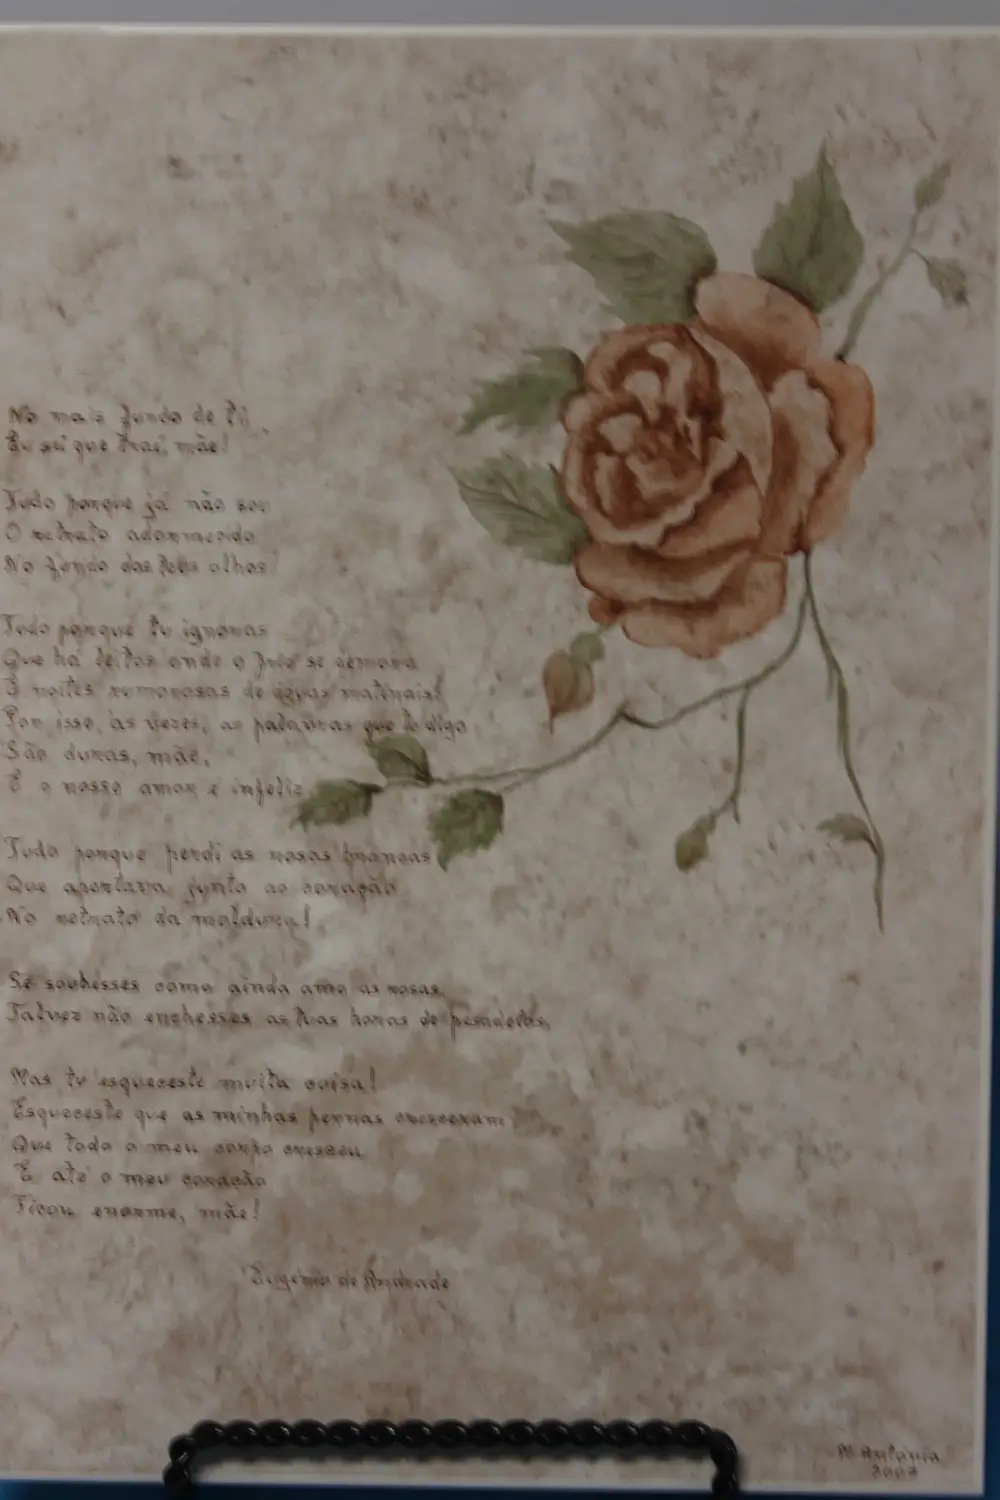 No mais fundo de ti,
Eu sei que traí, mãe!
Tudo porque já não sou
O retrato adormecido
No fundo dos teus olhos!
Tudo porque tu ignoras
Que há leitos onde o frio se demora
E noites rumorosas de águas matinais!
Por isso, às vezes, as palavras que te digo
São duras, mãe,
E o nosso amor é infeliz
Tudo porque perdi as rosas brancas
Que apertava junto ao coração
No retrato da moldura!
Se soubesses como ainda amo as rosas,
Talvez não enchesses as tuas horas de pesadelos,
Mas tu esqueceste muita coisa!
Esqueceste que as minhas pernas cresceram,
Que todo o meu corpo cresceu,
E até o meu coração
Ficou enorme, mãe!
Eugénio de Andrade
Mª Antónia
2007